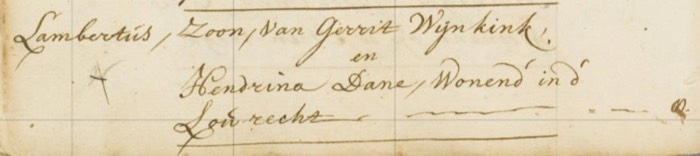 Lambertus, Zoon, van Gerrit Wijnkink,
en
Hendrina Dane, Wonend' in d'
Lourecht